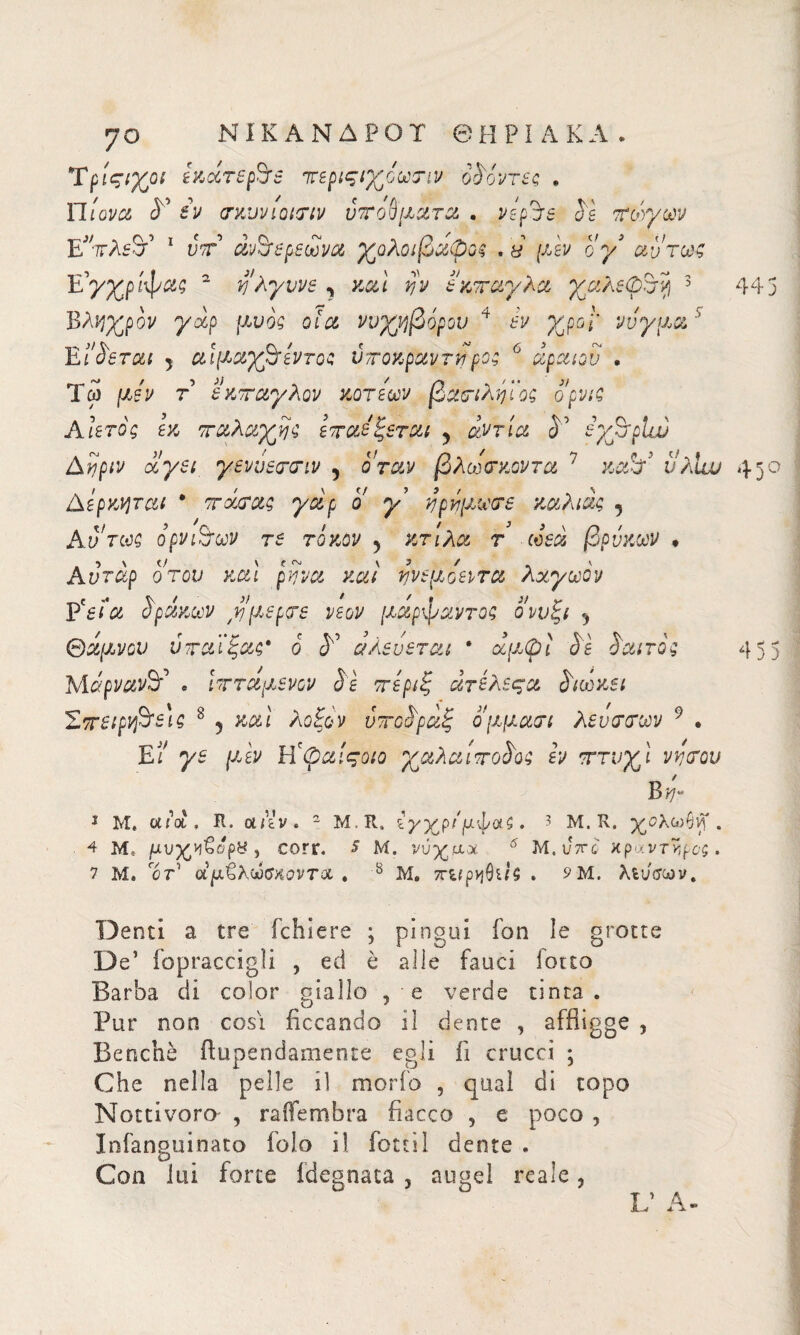 70 ΝΙΚΑΝΔΡΟΥ ΘΗΡΙΑΚΑ.
Τρίςιχοι ἑκάτερθε περιςιχόωσιν ὀδόντες .
Πίονα δ' ἐν σκυνίοισιν ὑπόθματα . νέρθε δὲ πώγων
Ἔπλεθ' ¹ ὑπ' ἀνθερεῶνα χολοιβάφος . ȣ̓ μὲν ὅγ' αὔτως
Ἐγχρίψας ² ἤλγυνε , καὶ ἢν ἔκπαγλα χαλεφθῇ ³ 445
Βληχρὸν γὰρ μυὸς οἷα νυχηβόρου ⁴ ἐν χροῒ νύγμα ⁵
Εἴδεται , αἱμαχθέντος ὑποκραντῆρος ⁶ ἀραιοῦ .
Τῷ μέν τ' ἔκπαγλον κοτέων βασιλήϊος ὄρνις
Αἰετὸς ἐκ παλαχῆς ἐπαέξεται , ἀντία δ' ἐχθρὶω
Δῆριν ἄγει γενύεσσιν , ὅταν βλώσκοντα ⁷ καθ' ὕλὶω 450
Δέρκηται · πάσας γὰρ ὅ γ' ἠρήμωσε καλιὰς ,
Αὔτως ὀρνίθων τε τόκον , κτίλα τ' ὠεὰ βρύκων .
Αὐτὰρ ὅτου καὶ ῥῆνα καὶ ἠνεμόεντα λαγωὸν
Ρ῾εῖα δράκων ἤμερσε νέον μάρψαντος ὄνυξι ,
Θάμνου ὑπαΐξας· ὁ δ' ἀλεύεται · ἀμφὶ δὲ δαιτὸς 455
Μάρνανθ' . ἱπτάμενον δὲ πέριξ ἀτέλεςα διώκει
Σπειρηθεὶς ⁸ , καὶ λοξὸν ὑποδρὰξ ὄμμασι λεύσσων ⁹ .
Εἴ γε μὲν Ἡφαίςοιο χαλαίποδος ἐν πτυχὶ νήσου
Βή-
¹ M. αἰὰ. R. αἰὲν. ² M. R. ἐγχρίμψας. ³ M. R. χολωθῇ.
⁴ M. μυχηϐόρȣ, corr. ⁵ M. νύχμα ⁶ M. ὑπὸ κραντῆρος.
⁷ M. ὅτ' ἀμϐλώσκοντα . ⁸ M. πειρηθεὶς . ⁹ M. λεύσων.
Denti a tre schiere ; pingui son le grotte
De' sopraccigli , ed è alle fauci sotto
Barba di color giallo , e verde tinta .
Pur non così ficcando il dente , affligge ,
Benchè stupendamente egli si crucci ;
Che nella pelle il morso , qual di topo
Nottivoro , rassembra fiacco , e poco ,
Insanguinato solo il sottil dente .
Con lui forte sdegnata , augel reale ,
L' A-